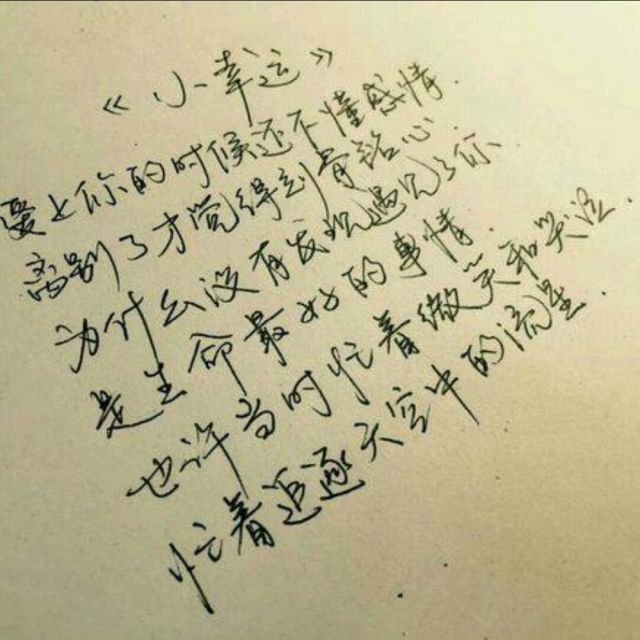 《小幸运》
爱上你的时候还不懂感情.
离别了才觉得刻骨铭心
为什么没有发现遇见了你.
是生命最好的事情.
也许当时忙着微笑和哭泣.
忙着追逐天空中的流星.